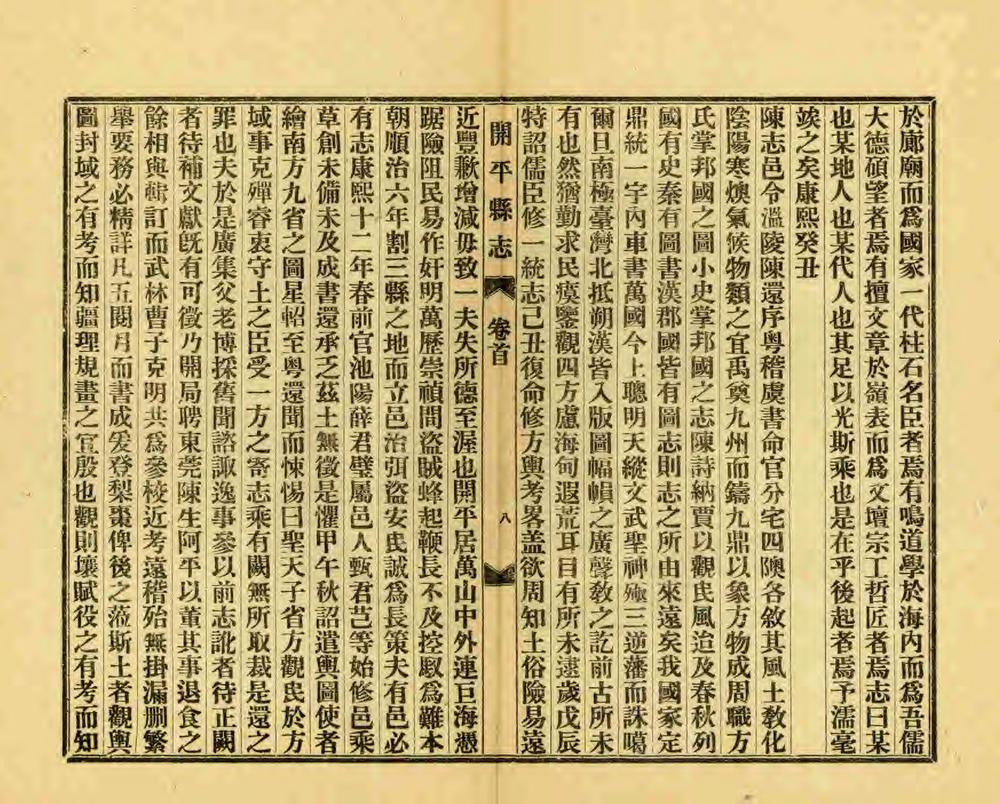 於廊廟而爲國家一代柱石名臣者焉有鳴道學於海內而爲吾儒
大德碩望者焉有擅文章於嶺表而爲文壇宗工哲匠者焉志曰某
也某地人也某代人也其足以光斯乘也是在乎後起者焉予濡毫
竢之矣康熙癸丑
陳志邑令溫陵陳還序粵稽虞書命官分宅四隩各敘其風土敎化
陰陽寒燠氣候物類之宜禹奠九州而鑄九鼎以象方物成周職方
氏掌邦國之圖小史掌邦國之志陳詩納賈以觀民風迨及春秋列
國有史秦有圖書漢郡國皆有圖志則志之所由來遠矣我國家定
鼎統一宇內車書萬國今上聰明天縱文武聖神殛三逆藩而誅噶
爾旦南極臺灣北抵朔漢皆入版圖幅幀之廣聲敎之訖前古所未
有也然猶勤求民瘼鑒觀四方慮海甸遐荒耳目有所未逮歲戊辰
特詔儒臣修一統志己丑復命修方輿考畧盖欲周知土俗險易遠
開平縣志 卷首 八
近豐歉增減毋致一夫失所德至渥也開平居萬山中外連巨海憑
踞險阻民易作奸明萬歷崇禎間盜賊蜂起鞭長不及控馭爲難本
朝順治六年割三縣之地而立邑治弭盜安民誠爲長策夫有邑必
有志康熙十二年春前官池陽薛君璧屬邑人甄君芑等始修邑乘
草創未備未及成書還承乏茲土無徵是懼甲午秋詔遣輿圖使者
繪南方九省之圖星軺至粵還聞而悚惕曰聖天子省方觀民於方
域事克殫睿衷守土之臣受一方之寄志乘有闕無所取裁是還之
罪也夫於是廣集父老博採舊聞諮諏逸事參以前志訛者待正闕
者待補文獻旣有可徵乃開局聘東莞陳生阿平以董其事退食之
餘相與輯訂而武林曹子克明共爲參校近考遠稽殆無掛漏删繁
舉要務必精詳凡五閱月而書成爰登梨棗俾後之蒞斯土者觀輿
圖封域之有考而知疆理規畫之宜殷也觀則壤賦役之有考而知